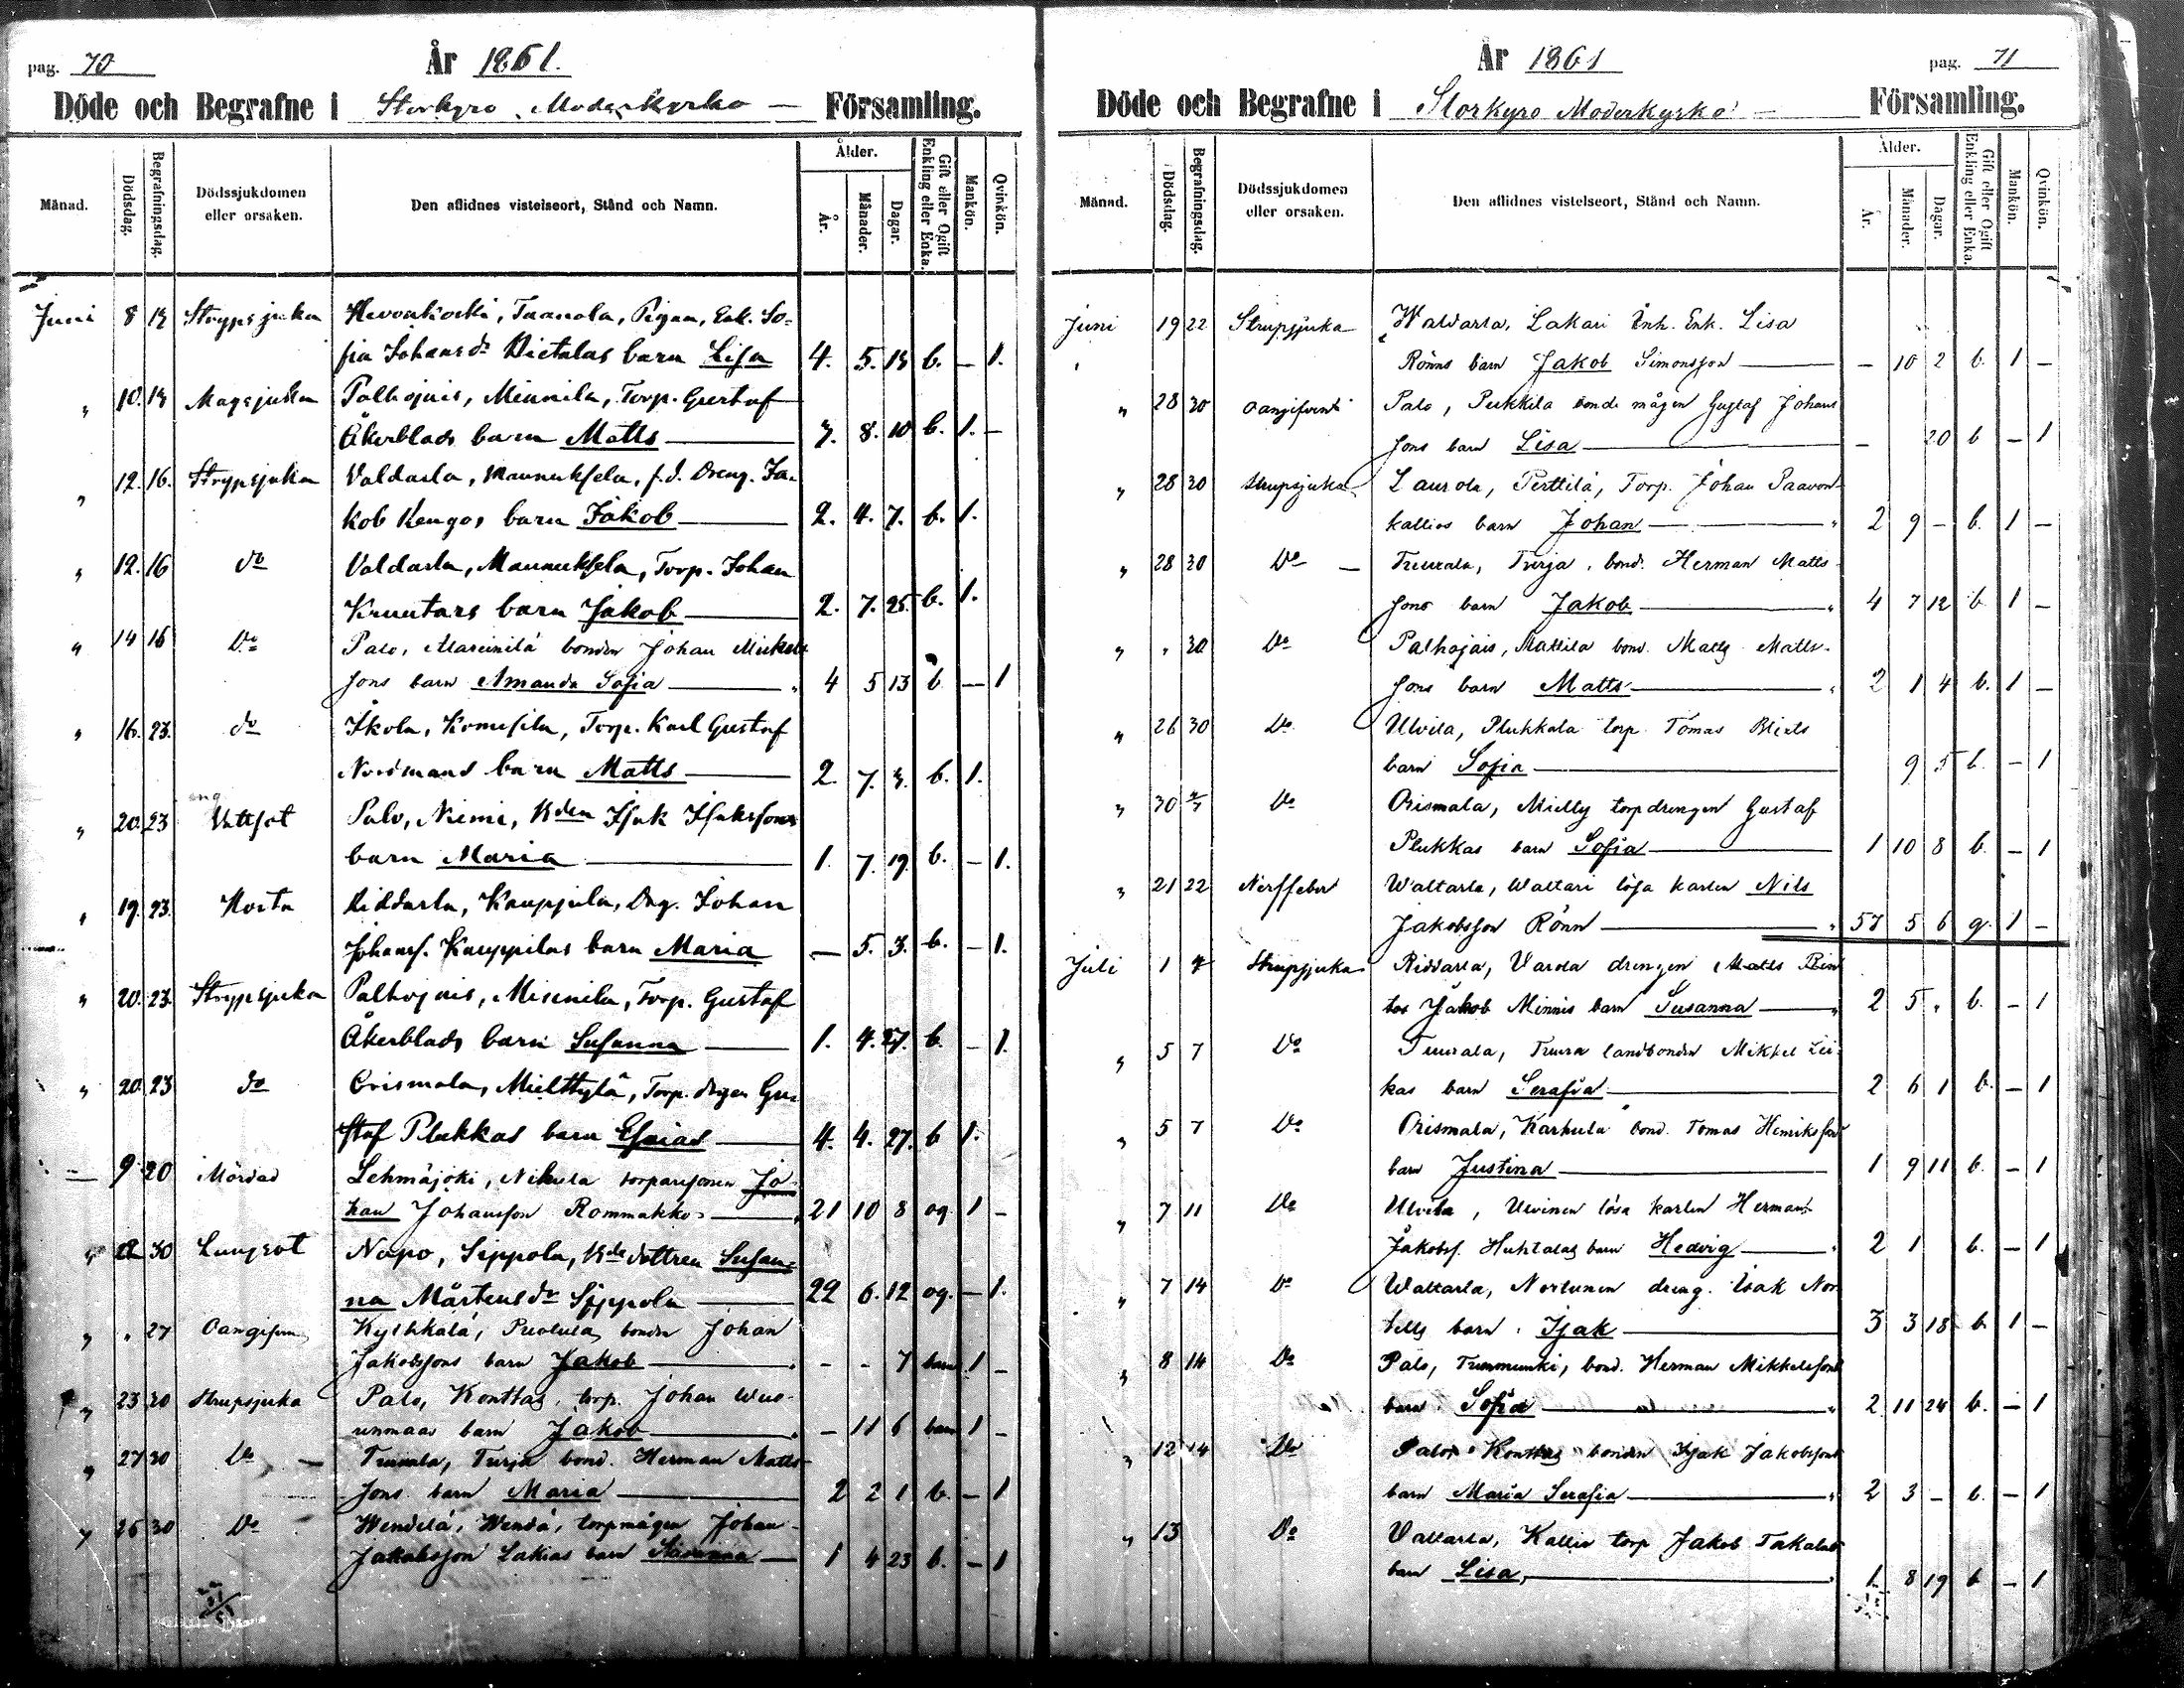 pag. 70
År 1861.
Döde och Begrafne i Storkyro Moderkyrko — Församling.
Månad.
Dödsdag.
Begrafningsdag.
Dödssjukdomen eller orsaken.
Den aflidnes vistelseort, Stånd och Namn.
Ålder.
År.
Månader.
Dagar.
Gift eller Ogift Enkling eller Enka.
Mankön.
Qvinkön.
Juni 8 Strypsjukan Pigan, Enk. So-
fia Johansdr barn Lisa 4. 5. b. — 1.
" 10. Magsjukan Palhojais, Torp. Gustaf
Åkerblads barn Matts 8. 10 b. 1. —
" 12. 16. Strypsjukan Valdarla, Maunuksela, f.d. Dreng. Ja-
kob Kengos barn Jakob 2. 4. 7. b. 1.
" 12. 16 do Valdarla, Maunuksela, Torp. Johan
Kruutars barn Jakob 2. 7. 25. b. 1.
" 14 16 Do Palo, bonden Johan Mickels
sons barn Amanda Sofia 4 5 13 b — 1
" 16. 23. do Ikola, Torp. Karl Gustaf
Nordmans barn Matts 2 7. b. 1.
" 20. 23 Palo, Niemi, Bden Isak Isaksons
barn Maria 1. 7. 19. b. — 1.
" 19. 23. Hosta Riddarla, Kauppila, Drg. Johan
Johanss. Kauppilas barn Maria — 5. 3. b. — 1.
" 20. 23. Strypsjukan Palhojais, Torp. Gustaf
Åkerblads barn Susanna 1. 4. 27. b. — 1.
" 20. 23 do Orismala, Mielttylä, Torp. drgen Gu-
staf Plukkas barn Esaias 4. 4. 27. b 1.
— 9 20 Mördad Lehmäjoki, Nikula torparesonen Jo-
han Johansson Rommakko 21 10 8 og 1 —
" 30 Lungsot Napo, Sippola, Bde dottren Susan-
na Mårtensdr Sippola 22 6. 12 og. — 1.
" " 27 Oangifven Kylkkälä, Puolula bonden Johan
Jakobssons barn Jakob - - 7 barn 1 —
" 23 30 Strupsjuka Palo, Konttas torp. Johan Wuo-
renmaas barn Jakob — 11 6 barn 1 —
" 27 30 Do — Tuurala, Turja bond. Herman Matts-
sons barn Maria 2 2 1 b. — 1
" 26 30 Do torpmågen Johan
Jakobsson Lakias barn Susanna 1 4 23 b. — 1
pag. 71
År 1861
Döde och Begrafne i Storkyro Moderkyrko — Församling.
Månad.
Dödsdag.
Begrafningsdag.
Dödssjukdomen eller orsaken.
Den aflidnes vistelseort, Stånd och Namn.
Ålder.
År.
Månader.
Dagar.
Gift eller Ogift Enkling eller Enka.
Mankön.
Qvinkön.
Juni 19 22 Strupsjuka Waldarla, Lakari Inh. Enk. Lisa
Rönns barn Jakob Simonsson — 10 2 b. 1 —
" 28 30 oangifven Palo, Pukkila bonde mågen Gustaf Johans
sons barn Lisa — 20 b — 1
" 28 30 Strupsjuka Laurola, Perttilä, Torp. Johan Paavon-
kallios barn Johan 2 9 — b. 1 —
" 28 30 Do — Tuurala, Turja, bond. Herman Matts-
sons barn Jakob 4 7 12 b. 1 —
" " 30 Do Palhojais, Mattila bond. Matts Matts-
sons barn Matts 2 1 4 b. 1 —
" 26 30 Do Ulvila, Plukkala torp. Tomas
barn Sofia 9 5 b. — 1
" 30 Do Orismala, Mielty torpdrengen Gustaf
Plukkas barn Sofia 1 10 8 b. — 1
" 21 22 Nerffeber Waltarla, Waltari lösa karlen Nils
Jakobsson Rönn 57 5 6 g. 1 —
Juli 1 Strupsjuka Riddarla, drengen
Jakob Minnis barn Susanna 2 5 " b. — 1
" 5 7 Do Tuurala, Tuura landbonden Mikkel Lii-
kas barn Serafia 2 6 1 b. — 1
" 5 7 Do Orismala, Karhula bond. Tomas Henrikssons
barn Justina 1 9 11 b. — 1
" 7 11 Do Ulvila, Ulvinen lösa karlen Herman
Jakobss. Huhtalas barn Hedvig 2 1 b. — 1
" 7 14 Do Waltarla, Nortunen dreng. Isak Nor-
tells barn Isak 3 3 18 b. 1 —
" 8 14 Do Palo, bond. Herman Mikkelssons
barn Sofia 2 11 24 b. — 1
" 12 14 Do Palo, Konttas bonden Isak Jakobssons
barn Maria Serafia 2 3 — b. — 1
" 13 Do Valtarla, Kallio torp Jakob Takalas
barn Lisa 1 8 19 b — 1